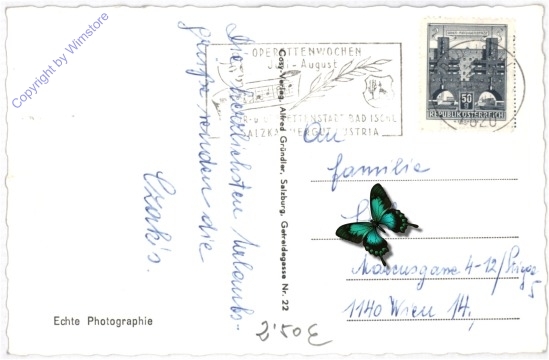 Copyright by Wimstore
OPERETTENWOCHEN
Juli - August
OPERETTENSTADT BAD ISCHL
SALZKAMMERGUT AUSTRIA
50
REPUBLIK ÖSTERREICH
4820
Die herzlichsten Urlaubs-
grüße senden die
Czak's.
Cosy-Verlag, Alfred Gründler, Salzburg, Getreidegasse Nr. 22
An
Familie
4-12/
5
1140 Wien 14,
Echte Photographie
2'50 €